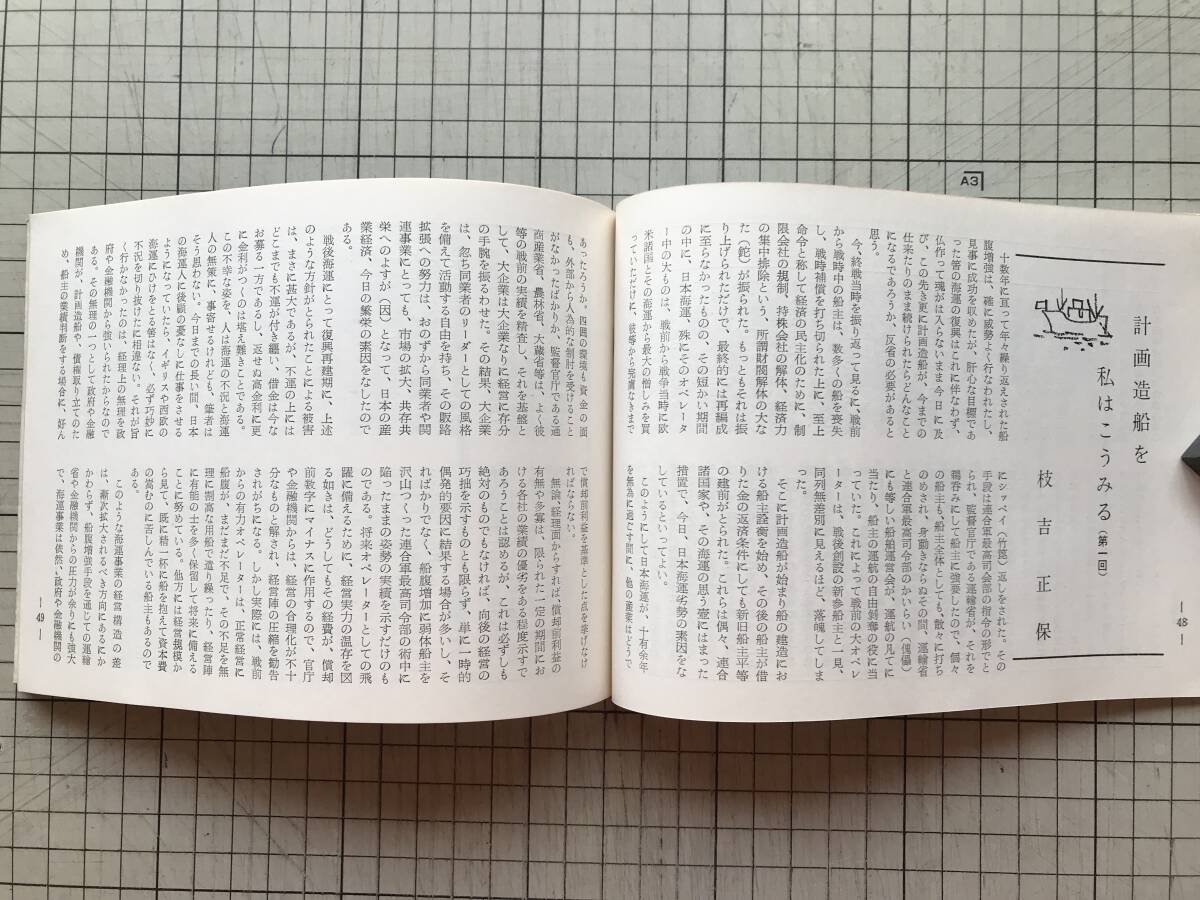 A3
計画造船を
私はこうみる（第一回）
枝吉正保
十数年に亘って年々繰り返えされた船
腹増強は、確に威勢よく行なわれたし、
見事に成功を収めたが、肝心な目標であ
った筈の海運の復興はこれに伴なわず、
仏作って魂が入らないまま今日に及
び、この先き更に計画造船が、今までの
仕来たりのまま続けられたらどんなこと
になるであろうか、反省の必要があると
思う。
今、終戦当時を振り返って見るに、戦前
から戦時中の船主は、数多くの船を喪失
し、戦時補償を打ち切られた上に、至上
命令と称して経済の民主化のために、制
限会社の規制、持株会社の解体、経済力
の集中排除という、所謂財閥解体の大な
た（鉈）が振られた。もっともそれは振
り上げられただけで、最終的には再編成
に至らなかったものの、その短かい期間
の中に、日本海運、殊にそのオペレータ
ー中の大ものは、戦前から戦争当時に欧
米諸国とその海運から最大の憎しみを買
っていただけに、彼等から完膚なきまで
にシャベイ（竹箆）返しをされた。その
手段は連合軍最高司令部の指令の形でと
られ、監督官庁である運輸省が、それを
鵜呑みにして船主に強要したので、個々
の船主も、船主全体としても、散々に打ち
のめされ、身動きならぬその間、運輸省
と連合軍最高司令部のかいらい（傀儡）
にも等しい船舶運営会が、運航の凡てに
当たり、船主の運航の自由剝奪の役に当
っていた。これによって戦前の大オペレ
ーターは、戦後創設の新参船主と一見、
同列無差別に見えるほど、落魄してしま
った。
そこに計画造船が始まり船の建造にお
ける船主詮衡を始め、その後の船主が借
りた金の返済条件にしても新旧船主平等
の建前がとられた。これらは偶々、連合
諸国家や、その海運の思う壺にはまった
措置で、今日、日本海運劣勢の素因をな
しているといってよい。
このようにして日本海運が、十有余年
を無為に過ごす間に、他の産業はどうで
—48—
あったろうか。四囲の環境も資金の面
も、外部から人為的な制肘を受けること
がなかったばかりか、監督官庁である通
商産業省、農林省、大蔵省等は、よく彼
等の戦前の実績を精査し、それを基盤と
して、大企業は大企業なりに経営に存分
の手腕を振るわせた。その結果、大企業
は、忽ち同業者のリーダーとしての風格
を備えて活動する自由を持ち、その販路
拡張への努力は、おのずから同業者や関
連事業にとっても、市場の拡大、共存共
栄へのよすが（因）となって、日本の産
業経済、今日の繁栄の素因をなしたので
ある。
戦後海運にとって復興再建期に、上述
のような方針がとられたことによる被害
は、まさに甚大であるが、不運の上には
どこまでも不運が付き纏い、借金は今な
お募る一方であるし、返せぬ高金利に更
に金利がつくのは堪え難きことである。
この不幸な姿を、人は海運の不況と海運
人の無策に、事寄せるけれども、筆者は
そう思わない。今日までの長い間、日本
の海運人に後顧の憂なしに仕事をさせる
ようになっていたら、イギリスや西欧の
海運にひけをとる筈はなく、必ず巧妙に
不況を切り抜けたに相違ない。それが旨
く行かなかったのは、経理上の無理を政
府や金融機関から強いられたからなので
ある。その無理の一つとして政府や金融
機関が、計画造船や、債権取り立てのた
め、船主の業績判断をする場合に、好ん
で償却前利益を基準とした点を挙げなけ
ればならない。
無論、経理面からすれば、償却前利益の
有無や多寡は、限られた一定の期間にお
ける各社の業績の優劣をある程度示すで
あろうことは認めるが、これは必ずしも
絶対のものでもなければ、向後の経営の
巧拙を示すものとも限らず、単に一時的
偶発的要因に結果する場合が多いし、そ
ればかりでなく、船腹増加に弱体船主を
沢山つくった連合軍最高司令部の術中に
陥ったままの姿勢の実績を示すだけのも
のである。将来オペレーターとしての飛
躍に備えるために、経営実力の温存を図
る如きは、どうしてもその経費が、償却
前数字にマイナスに作用するので、官庁
や金融機関からは、経営の合理化が不十
分なものと解され、経営陣の圧縮を勧告
されがちになる。しかし実際には、戦前
からの有力オペレーターは、正常経営に
船腹が、まだまだ不足で、その不足を無
理に割高な用船で遣り繰ったり、経営陣
に有能の士を多く保留して将来に備える
ことに努めている。他方には経営規模か
ら見て、既に精一杯に船を抱えて資本費
の嵩むのに苦しんでいる船主もあるので
ある。
このような海運事業の経営構造の差
は、漸次拡大されるべき方向にあるにか
かわらず、船腹増強手段を通じての運輸
省や金融機関からの圧力が余りにも強大
で、海運事業は依然、政府や金融機関の
—49—